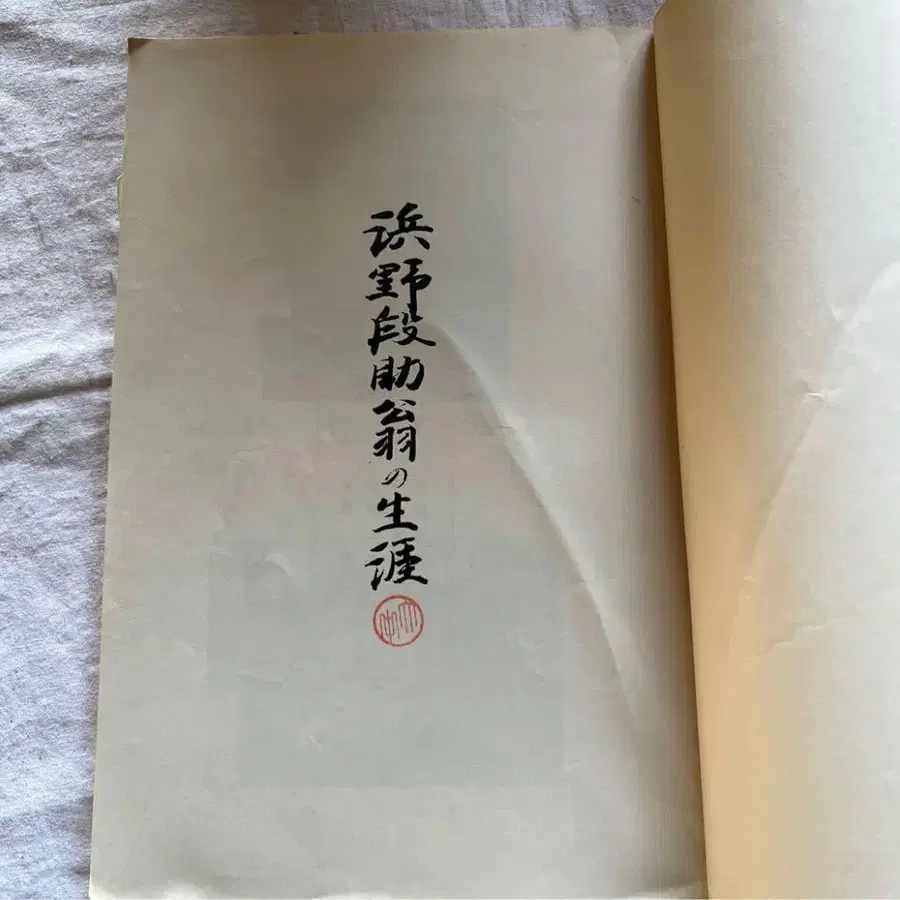 浜野段助翁の生涯